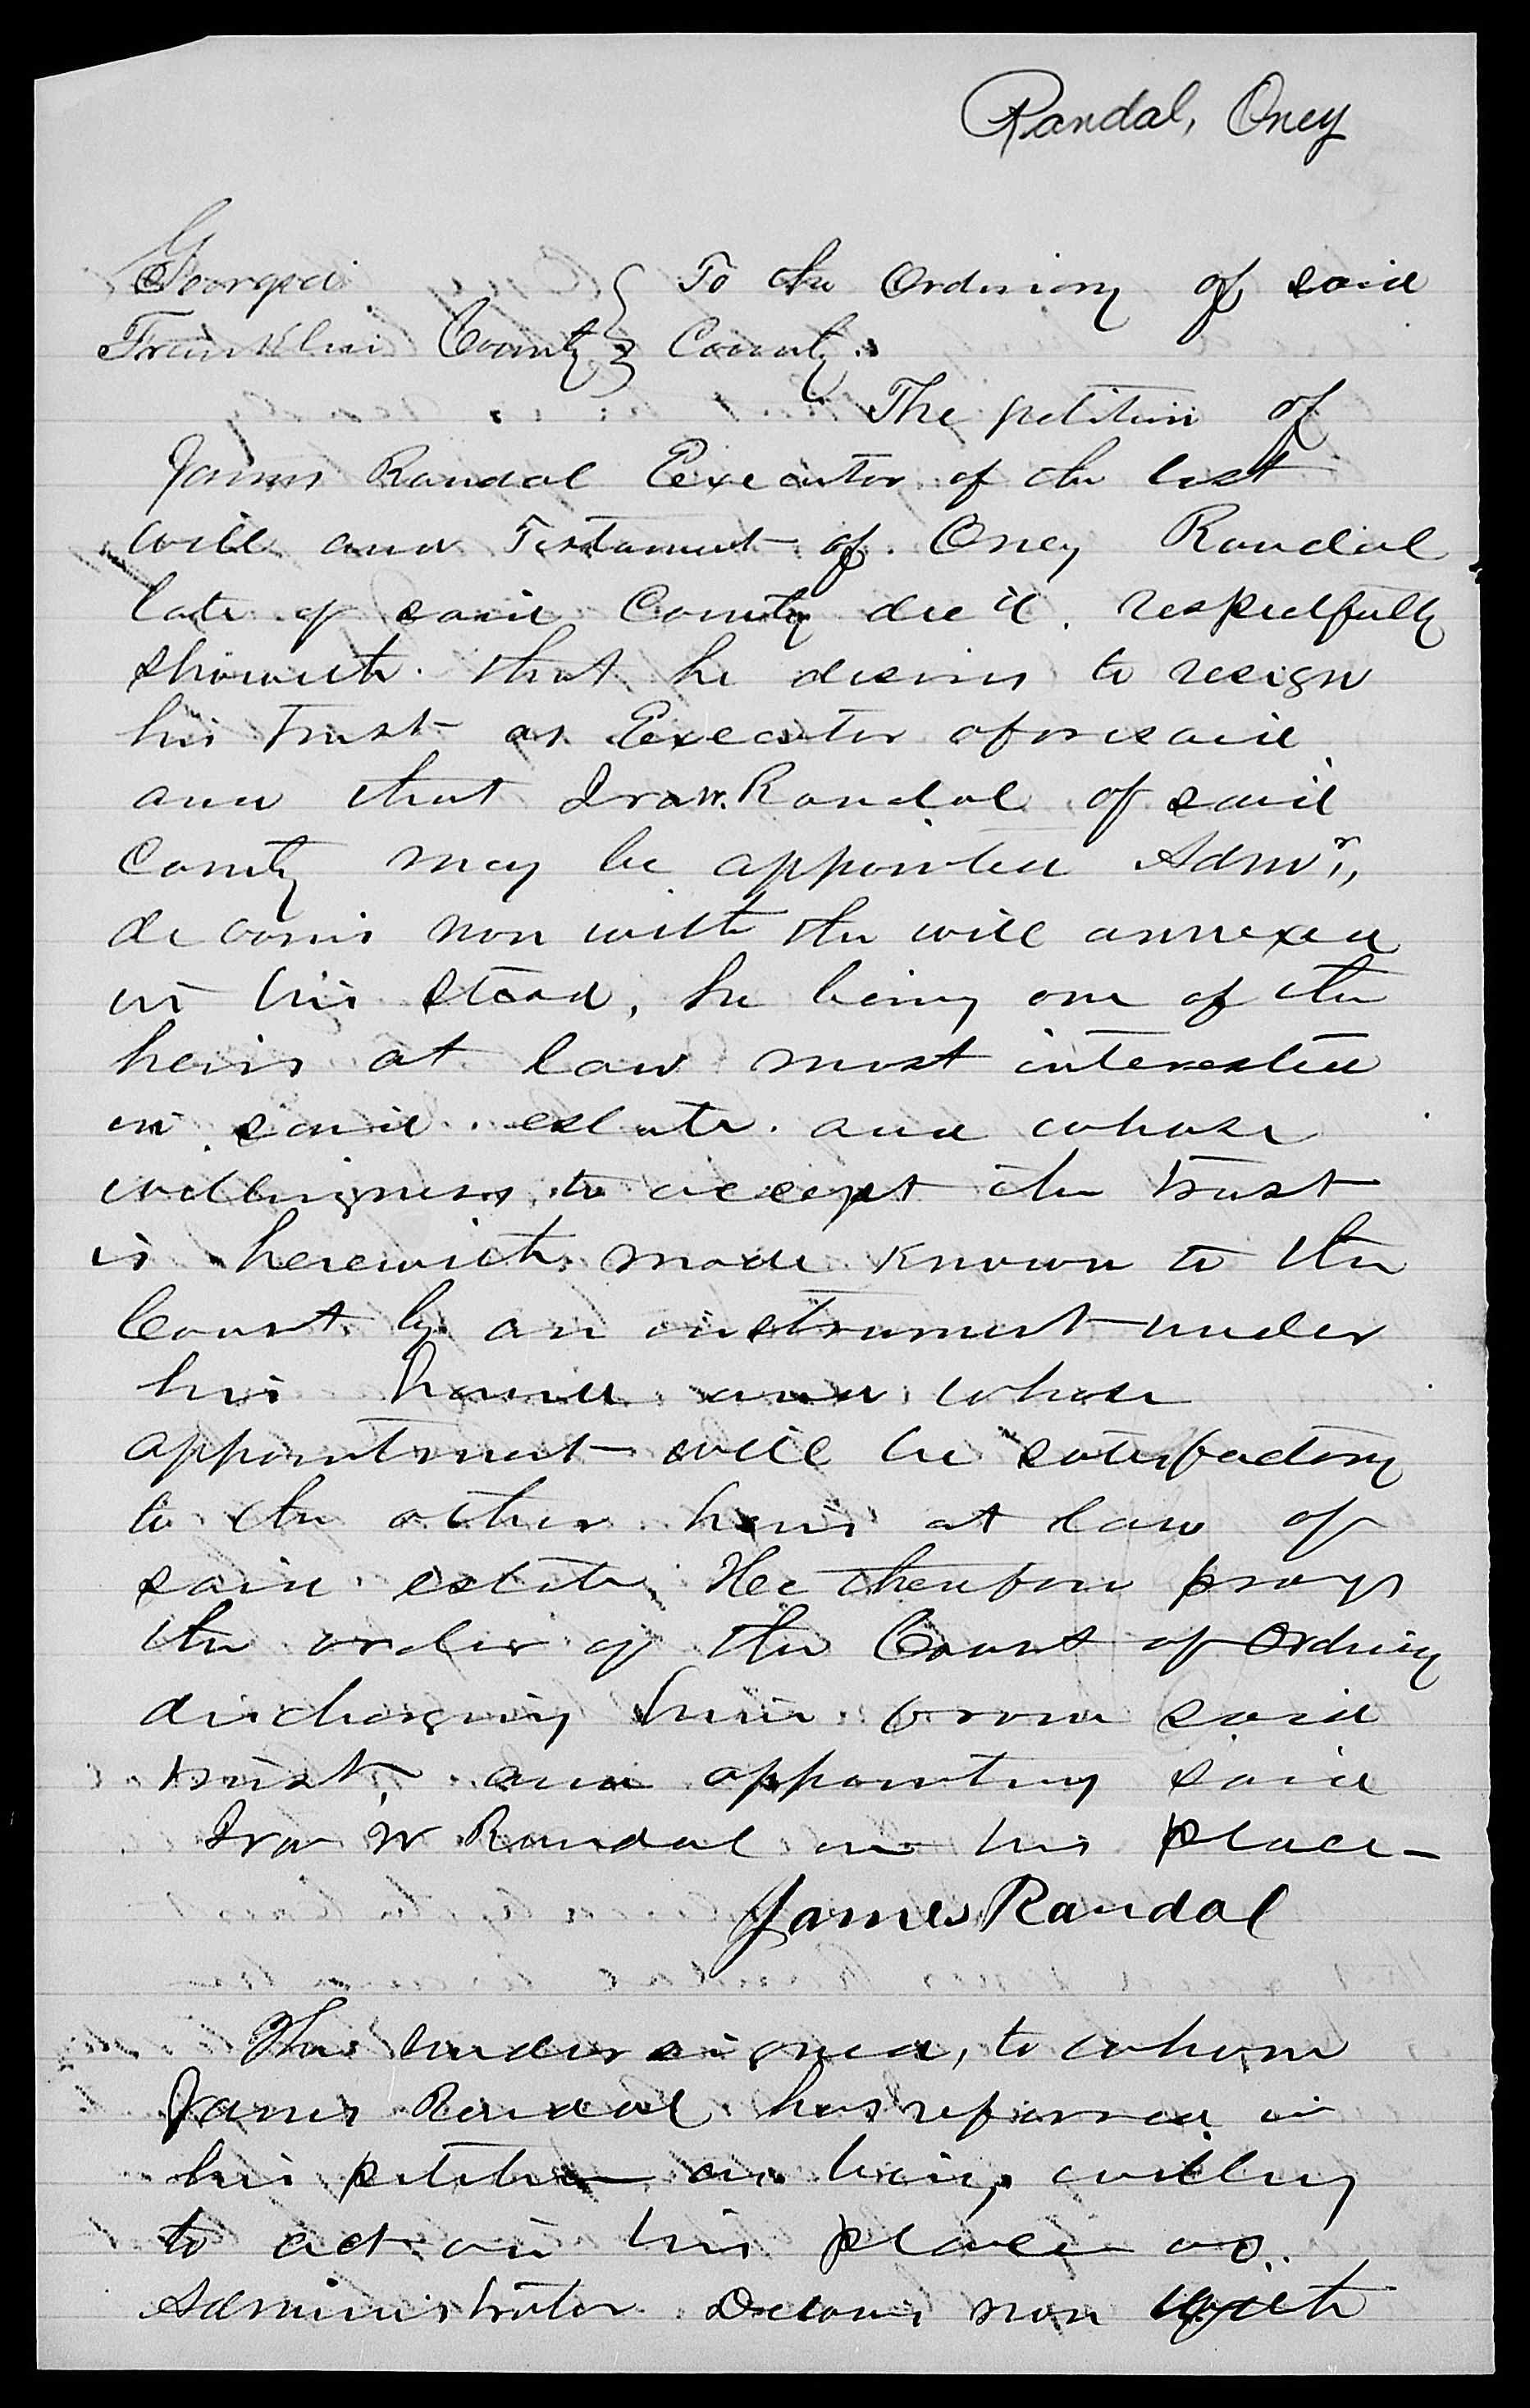 Randal, Oney
Georgia } To the Ordinary of said
Franklin County } County.
The petition of
James Randal Executor of the last
will and Testament of Oney Randal
late of said County dec'd. respectfully
showeth that he desires to resign
his Trust as Executor aforesaid
and that Ira W. Randal of said
County may be appointed Admr.,
de bonis non with the will annexed
in his stead, he being one of the
heirs at law most interested
in said estate. and whose
willingness to accept the trust
is herewith made known to the
Court by an instrument under
his hand and whose
appointment will be satisfactory
to the other heirs at law of
said estate, He therefore prays
the order of the Court of Ordinary
discharging him from said
trust, and appointing said
Ira W Randal in his place—
James Randal
The undersigned, to whom
James Randal has referred in
his petition as being willing
to act in his place as
Administrator De bonis non with